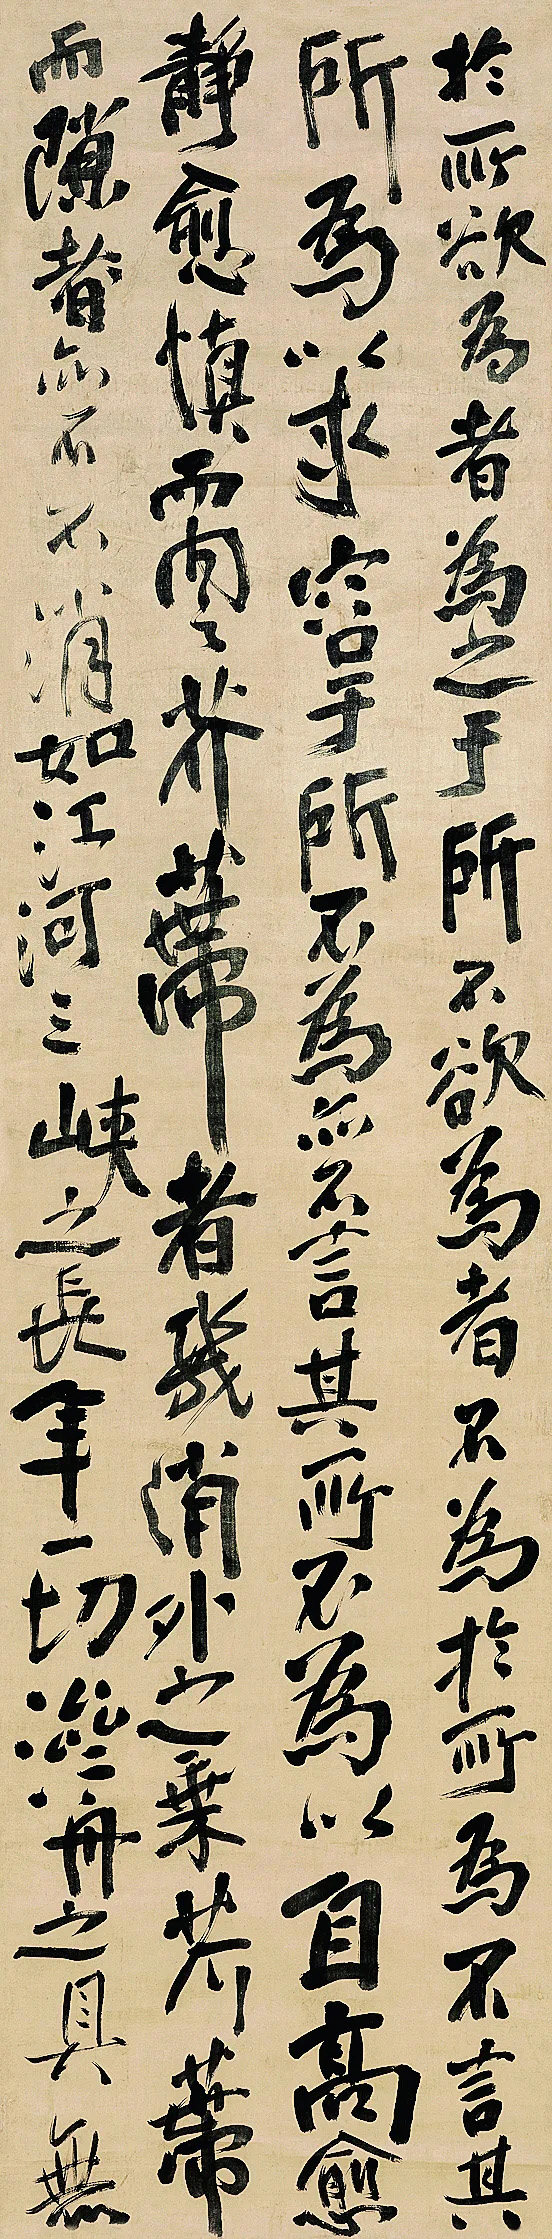 於所欲為者為之于所不欲為者不為於所為不言其
所為以求容于所不為亦不言其所不為以自高愈
靜愈慎而內之芥蒂者幾消外之乘芥蒂
而隙者亦不不消如江河三峽之長年一切舟之具無